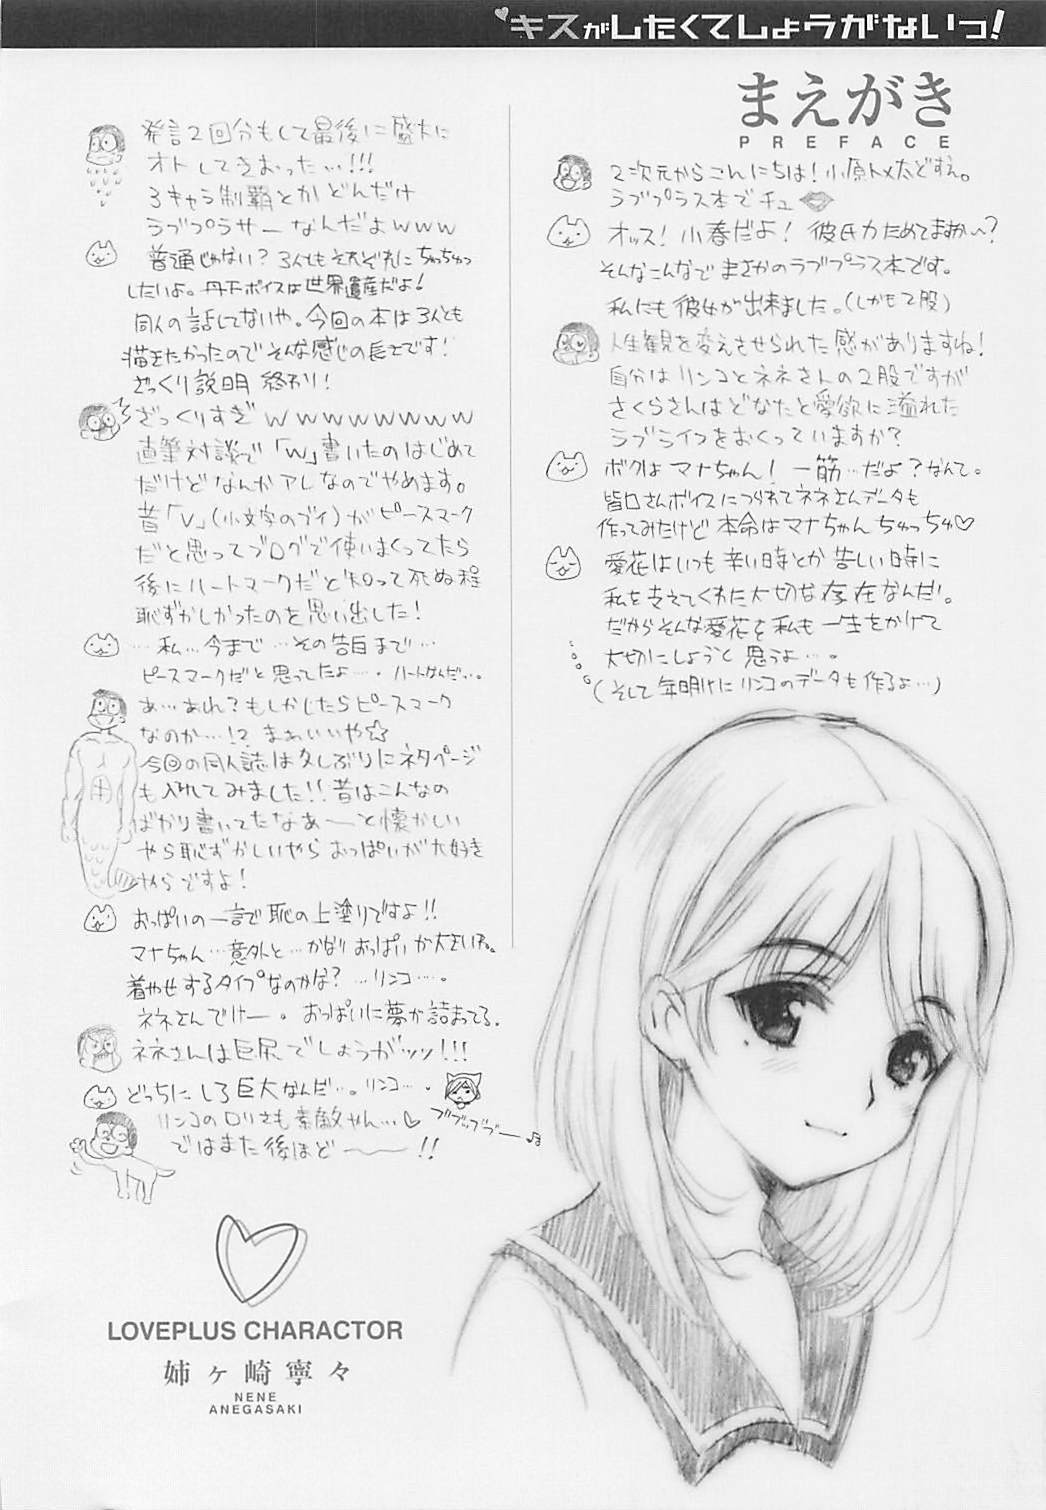 キスがしたくてしょうがないっ!
まえがき
PREFACE
2次元からこんにちは!小原トメ太どすえ。
ラブプラス本でチュ
オッス!小春だよ!彼氏力ためてますか〜?
そんなこんなでまさかのラブプラス本です。
私にも彼女が出来ました。(しかも2股)
人生観を変えさせられた感がありますね!
自分はリンコとネネさんの2股ですが
さくらさんはどなたと愛欲に溢れた
ラブライフをおくっていますか?
ボクはマナちゃん!一筋…だよ?なんて。
皆口さんボイスにつられてネネさんデータも
作ってみたけど本命はマナちゃんちゅっちゅ♡
愛花はいつも辛い時とか苦しい時に
私を支えてくれた大切な存在なんだ。
だからそんな愛花を私も一生をかけて
大切にしようと思うよ…。
(そして年明けにリンコのデータも作るよ…)
発言2回分もして最後に盛大に
オトしてきおった…!!!
3キャラ制覇とかどんだけ
ラブプラサーなんだよwww
普通じゃない?3人ともそれぞれにちゅっちゅっ
したいよ。丹下ボイスは世界遺産だよ!
同人の話してないや。今回の本は3人とも
描きたかったのでそんな感じの長さです!
ざっくり説明終わり!
ざっくりすぎwwwwwwww
直筆対談で「w」書いたのはじめて
だけどなんかアレなのでやめます。
昔「v」(小文字のブイ)がピースマーク
だと思ってブログで使いまくってたら
後にハートマークだと知って死ぬ程
恥ずかしかったのを思い出した!
…私…今まで…その告白まで…
ピースマークだと思ってたよ…。ハートなんだ…。
あ…あれ?もしかしたらピースマーク
なのか…!?まぁいいや☆
今回の同人誌は久しぶりにネタページ
も入れてみました!!昔はこんなの
ばかり書いてたなあ――と懐かしい
やら恥ずかしいやらおっぱいが大好き
やらですよ!
おっぱいの一言で恥の上塗りですよ!!
マナちゃん…意外と…かなりおっぱいが大きい子。
着やせするタイプなのかな?…リンコ…。
ネネさんでけー。おっぱいに夢が詰まってる。
ネネさんは巨尻でしょうがッッ!!!
どっちにしろ巨大なんだ…。リンコ…。
リンコのロリさも素敵やん…♡
ブブッブブー♪
ではまた後ほど――!!
LOVEPLUS CHARACTOR
姉ヶ崎寧々
NENE
ANEGASAKI